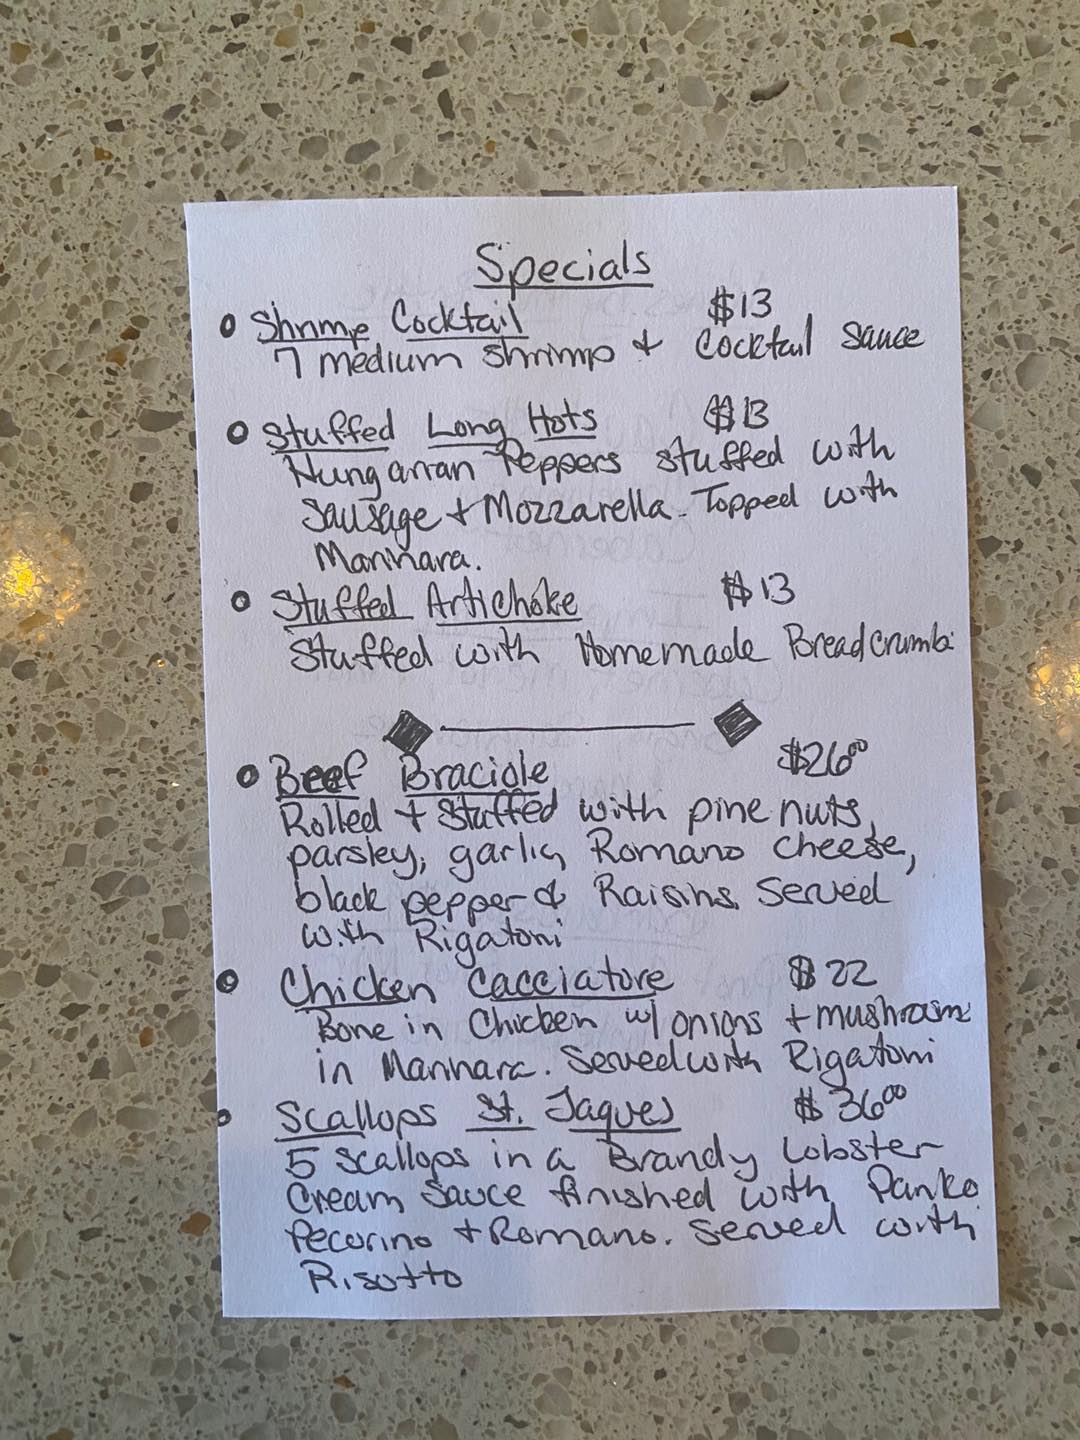 Specials
Shrimp Cocktail $13
7 medium shrimp + Cocktail Sauce
Stuffed Long Hots $13
Hungarian Peppers stuffed with
Sausage + Mozzarella. Topped with
Marinara.
Stuffed Artichoke $13
Stuffed with Homemade Breadcrumbs
Beef Braciole $26⁰⁰
Rolled + Stuffed with pine nuts,
parsley, garlic, Romano cheese,
black pepper & Raisins. Served
with Rigatoni
Chicken Cacciatore $22
Bone in Chicken w/ onions + mushrooms
in Marinara. Served with Rigatoni
Scallops St. Jaques $36⁰⁰
5 Scallops in a Brandy Lobster
Cream Sauce finished with Panko
Pecorino + Romano. Served with
Risotto